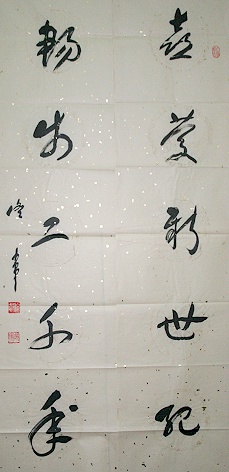 喜慶新世紀
暢步二千年